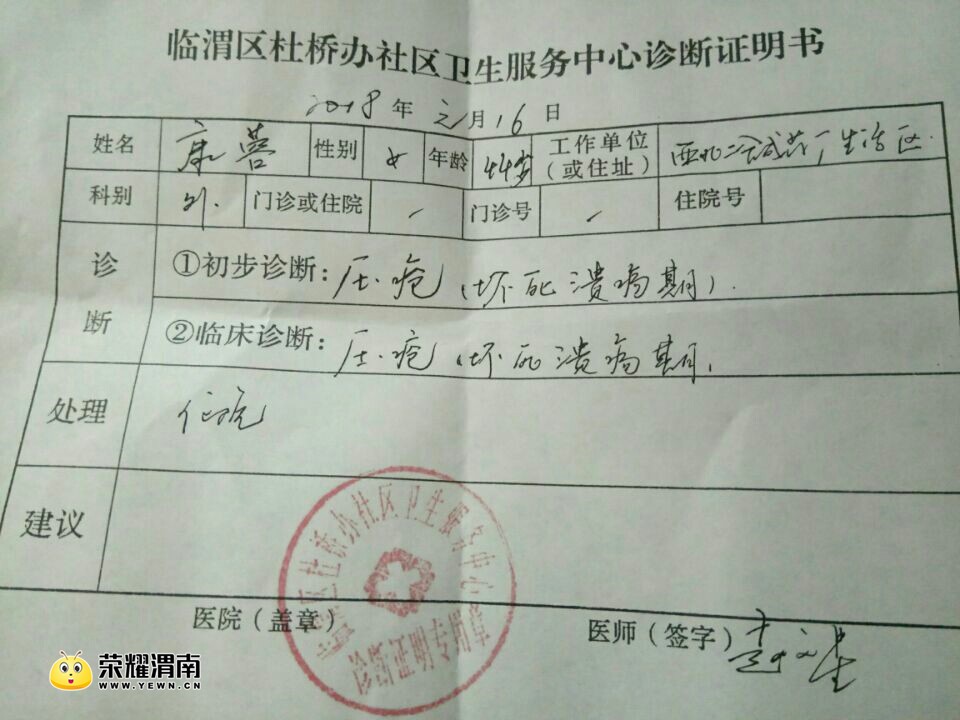 临渭区杜桥办社区卫生服务中心诊断证明书
2018年元月16日
姓名 康蓉 性别 女 年龄 44岁 工作单位(或住址) 西北二棉花厂生活区
科别 外. 门诊或住院 / 门诊号 / 住院号
诊断
①初步诊断:压疮(坏死溃疡期).
②临床诊断:压疮(坏死溃疡期.
处理 住院
建议
医院(盖章)
医师(签字)
临渭区杜桥办社区卫生服务中心
诊断证明专用章
荣耀渭南
WWW.YEWN.CN